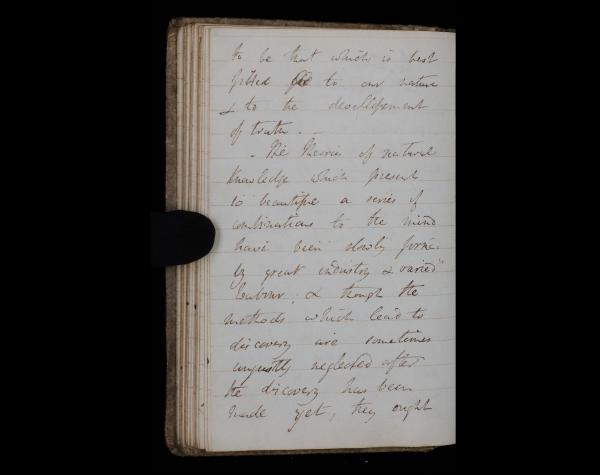 to be that which is best
fitted to our nature
& to the developement
of truth. –
– The Theories of natural
knowledge which present
so beautiful a series of
combinations to the mind
have been slowly formed
by great industry & varied
labour; & though the
methods which lead to
discovery are sometimes
unjustly neglected after
the discovery has been
made yet, they ought